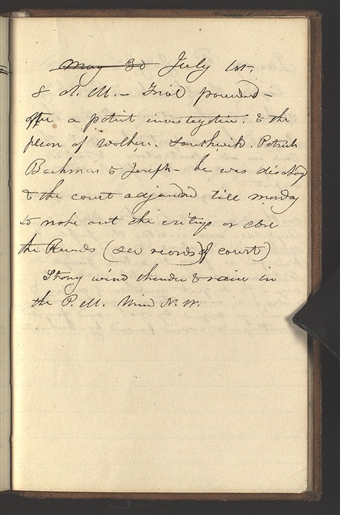 May 30 July 1st,
8 A. M. — Trial proceeded —
after a patient investigation; & the
pleas of Walker. Southwick. Patrick
Backman & Joseph — he was discharg
& the court adjourned till monday
to make out the
the Records (see records of court)
Strong wind thunder & rain in
the P. M. Wind N. W.